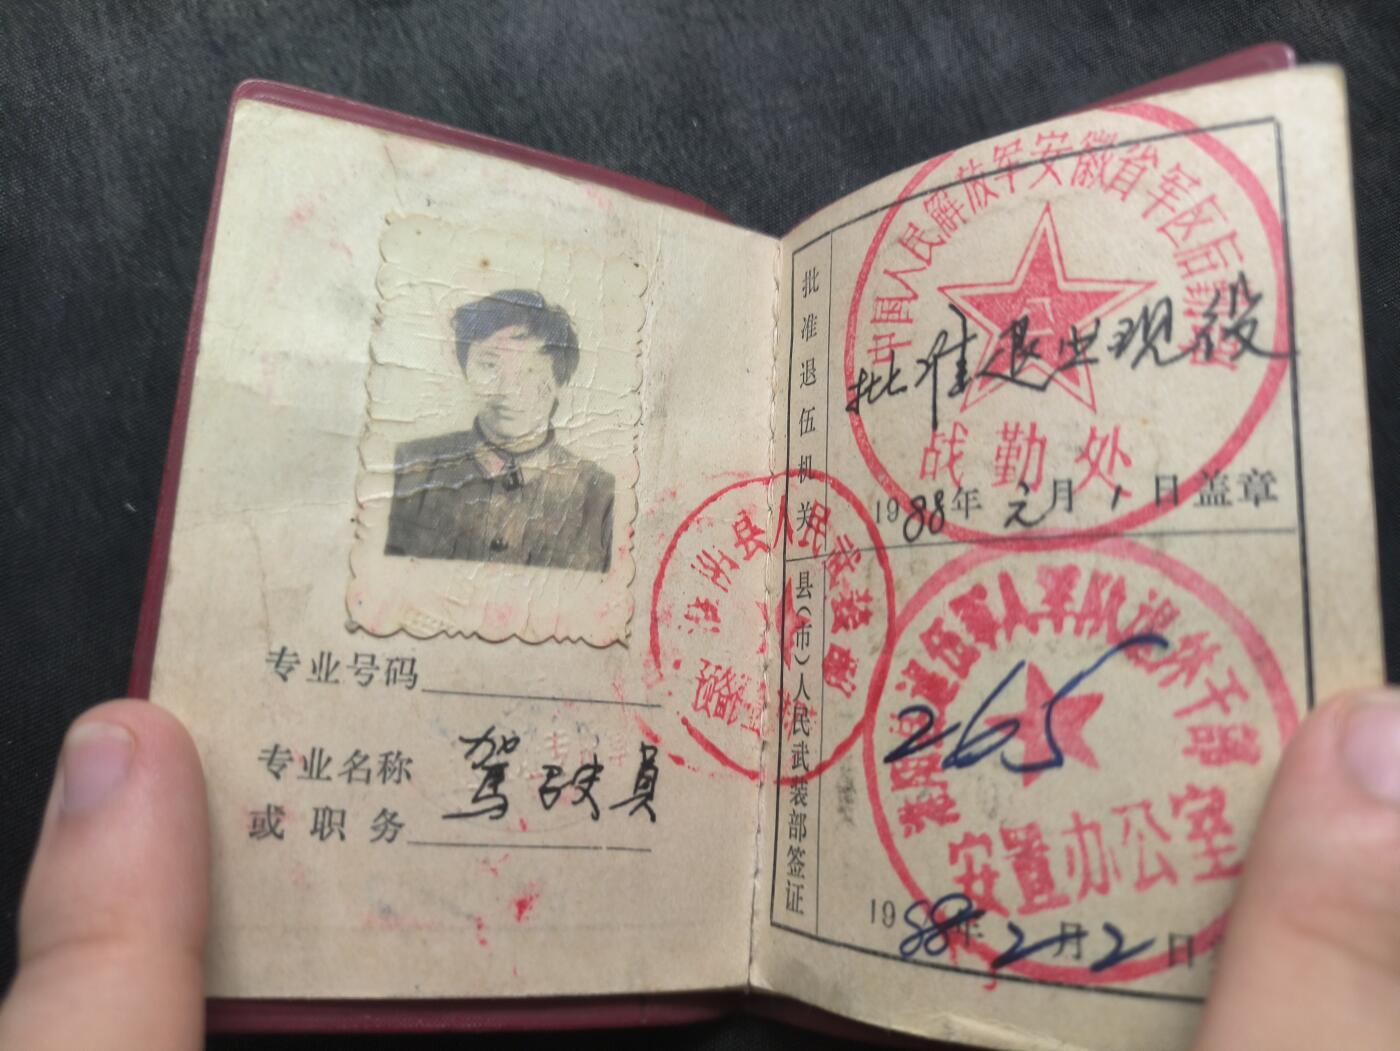 专业号码
专业名称
或职务 驾驶員
县人民武装部
预备
批准退伍机关
中国人民解放军安徽省军区后勤部
批准退出现役
战勤处
1988年元月1日盖章
县(市)人民武装部签证
退伍军人军队退休干部
安置办公室
265
1988年2月2日